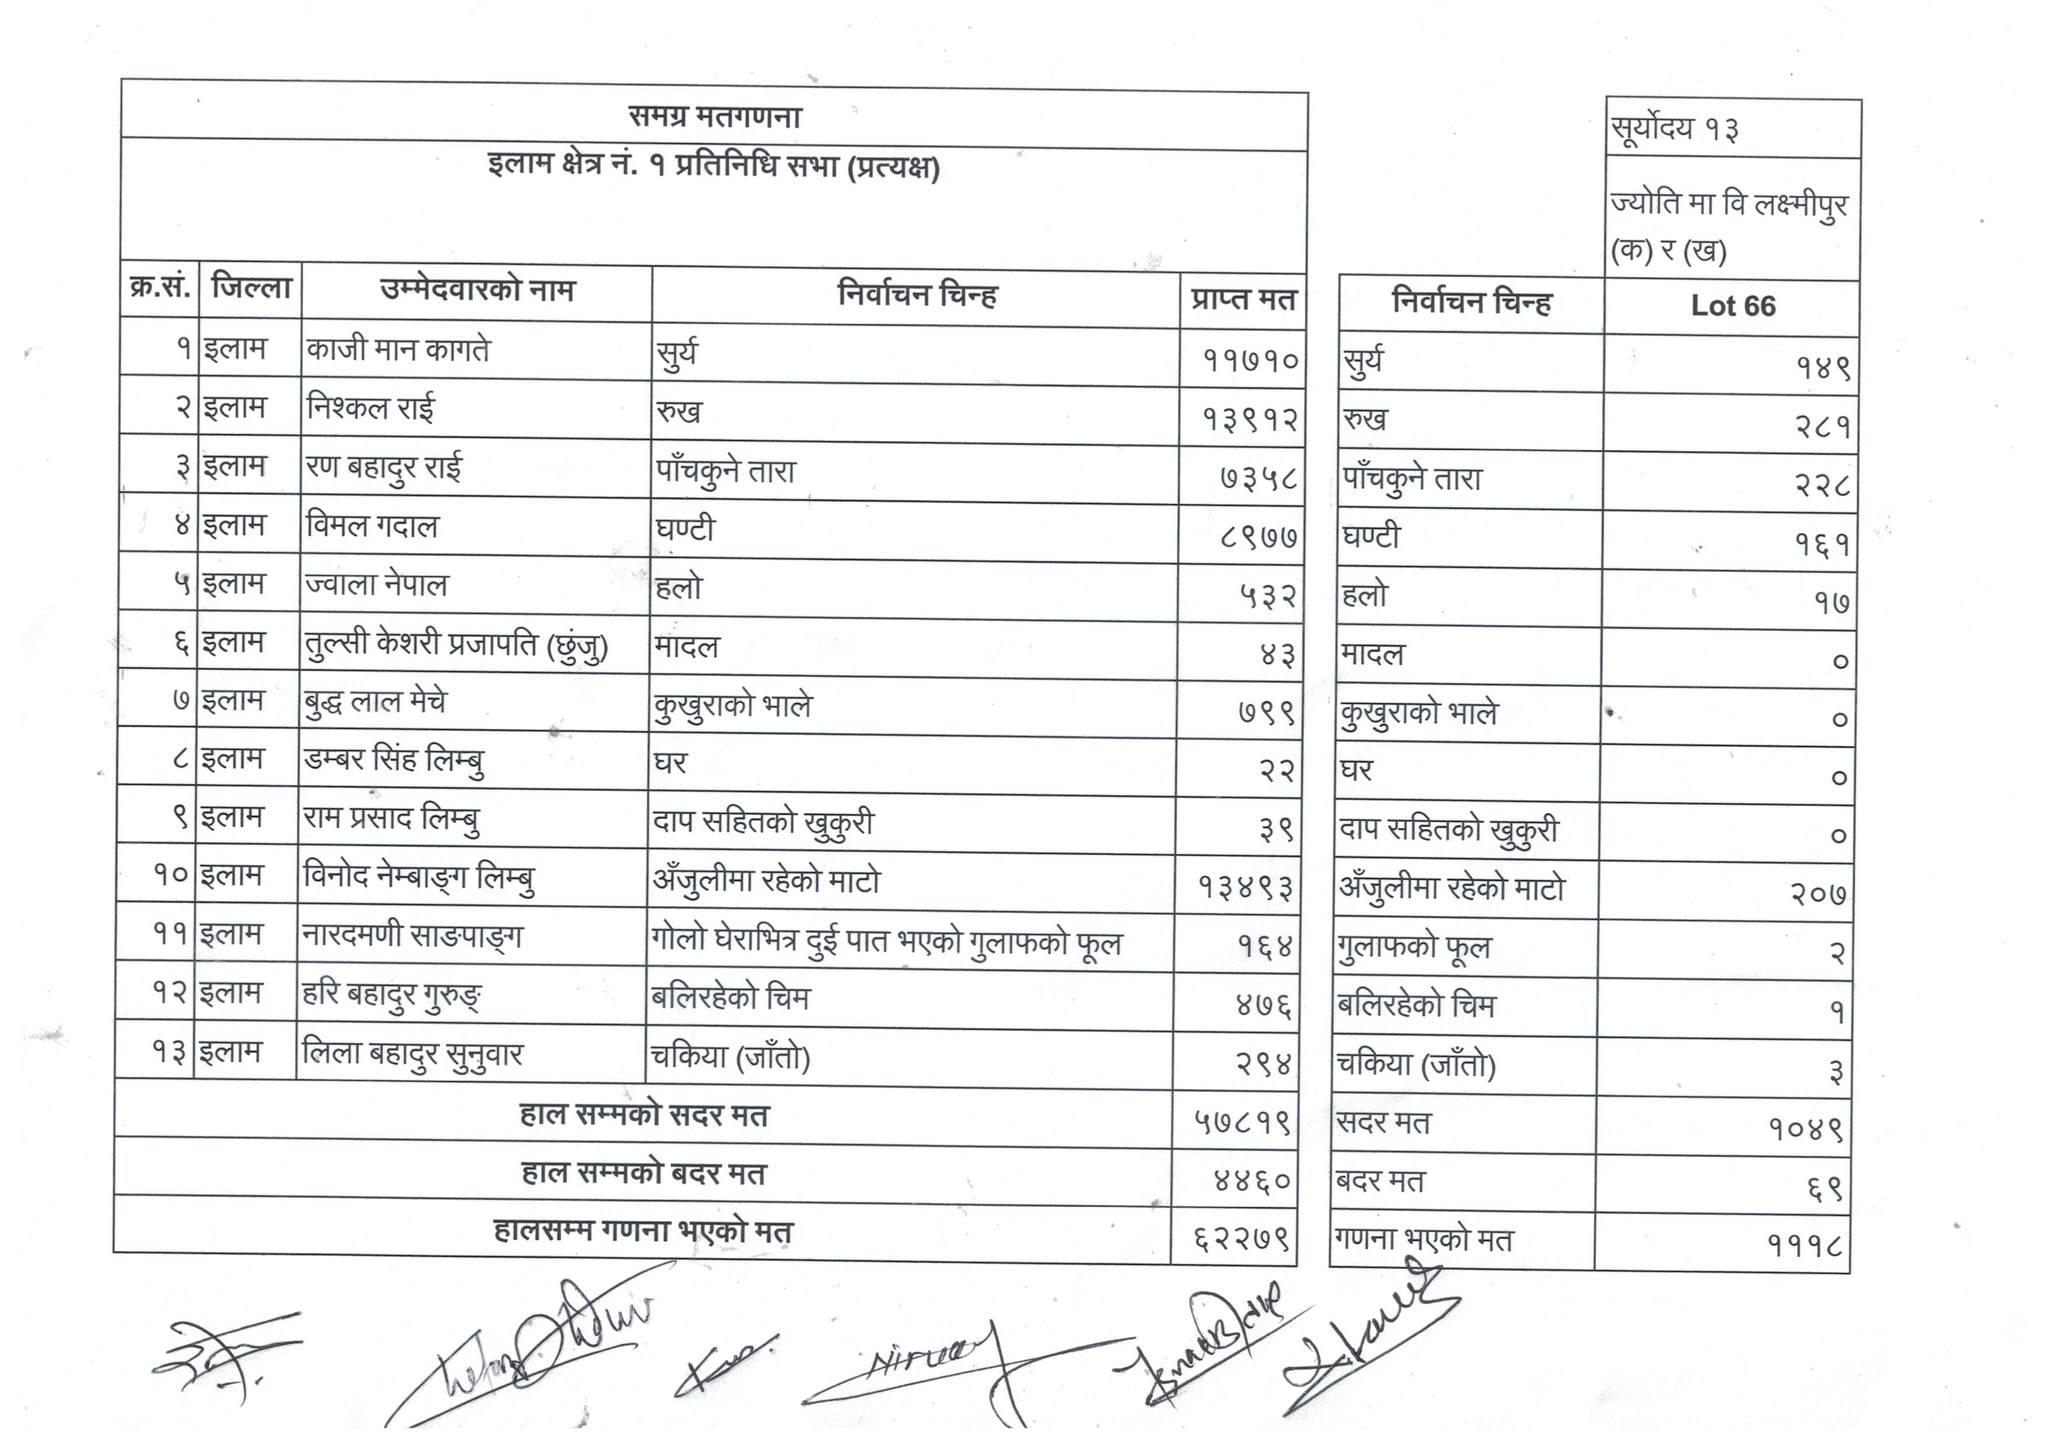 समग्र मतगणना
इलाम क्षेत्र नं. १ प्रतिनिधि सभा (प्रत्यक्ष)
सूर्योदय १३
ज्योति मा वि लक्ष्मीपुर
(क) र (ख)
क्र.सं. जिल्ला उम्मेदवारको नाम निर्वाचन चिन्ह प्राप्त मत निर्वाचन चिन्ह Lot 66
१ इलाम काजी मान कागते सुर्य ११७१० सुर्य १४९
२ इलाम निश्कल राई रुख १३९१२ रुख २८१
३ इलाम रण बहादुर राई पाँचकुने तारा ७३५८ पाँचकुने तारा २२८
४ इलाम विमल गदाल घण्टी ८९७७ घण्टी १६१
५ इलाम ज्वाला नेपाल हलो ५३२ हलो १७
६ इलाम तुल्सी केशरी प्रजापति (छुंजु) मादल ४३ मादल ०
७ इलाम बुद्ध लाल मेचे कुखुराको भाले ७९९ कुखुराको भाले ०
८ इलाम डम्बर सिंह लिम्बु घर २२ घर ०
९ इलाम राम प्रसाद लिम्बु दाप सहितको खुकुरी ३९ दाप सहितको खुकुरी ०
१० इलाम विनोद नेम्बाङ्ग लिम्बु अँजुलीमा रहेको माटो १३४९३ अँजुलीमा रहेको माटो २०७
११ इलाम नारदमणी साङपाङ्ग गोलो घेराभित्र दुई पात भएको गुलाफको फूल १६४ गुलाफको फूल २
१२ इलाम हरि बहादुर गुरुङ् बलिरहेको चिम ४७६ बलिरहेको चिम १
१३ इलाम लिला बहादुर सुनुवार चकिया (जाँतो) २९४ चकिया (जाँतो) ३
हाल सम्मको सदर मत ५७८१९ सदर मत १०४९
हाल सम्मको बदर मत ४४६० बदर मत ६९
हालसम्म गणना भएको मत ६२२७९ गणना भएको मत १११८